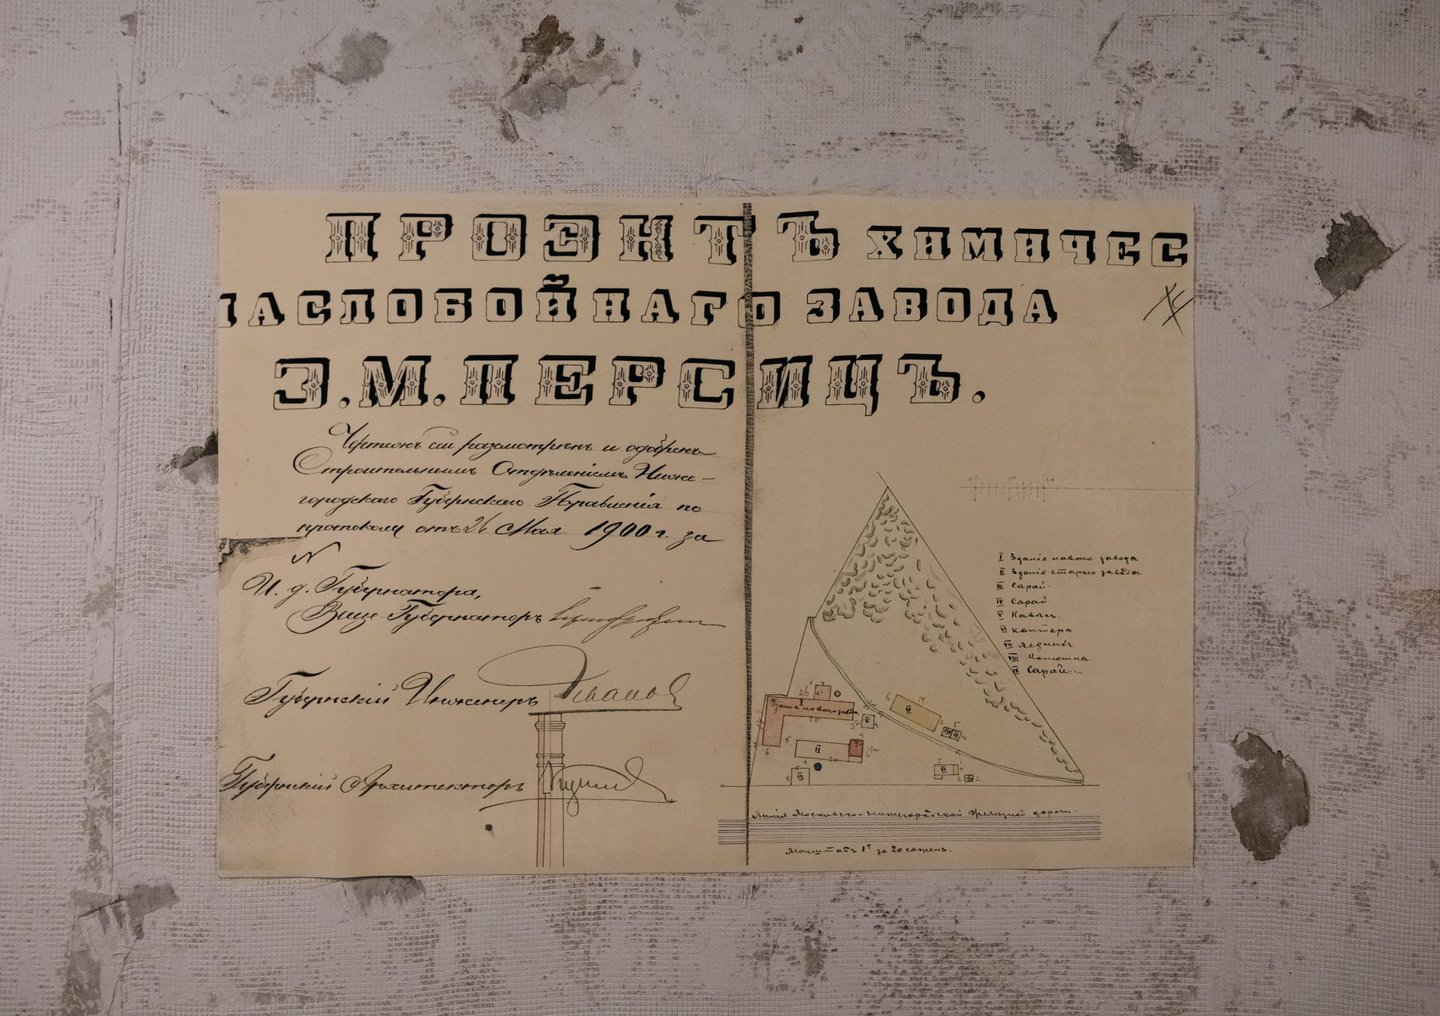 ПРОЭКТЪ ХИМИЧЕС
МАСЛОБОЙНАГО ЗАВОДА
З.М.ПЕРСИЦЪ.
Чертежъ сей разсмотренъ и одобренъ
Строительнымъ Отдѣленіемъ Ниже-
городскаго Губернскаго Правленія по
протоколу отъ 26 Мая 1900 г. за
N
И. д. Губернатора,
Вице-Губернаторъ
Губернскій Инженеръ Ивановъ
Губернскій Архитекторъ
I Зданіе новаго завода
II Зданіе стараго завода
III Сарай
IV Сарай
V Навѣсъ
VI Контора
VII Ледникъ
VIII Конюшна
IX Сарай
Зданіе новаго зав.
II
Линія Московско-Нижегородской Желѣзной дороги.
Масштабъ 1" за 20 сажень.